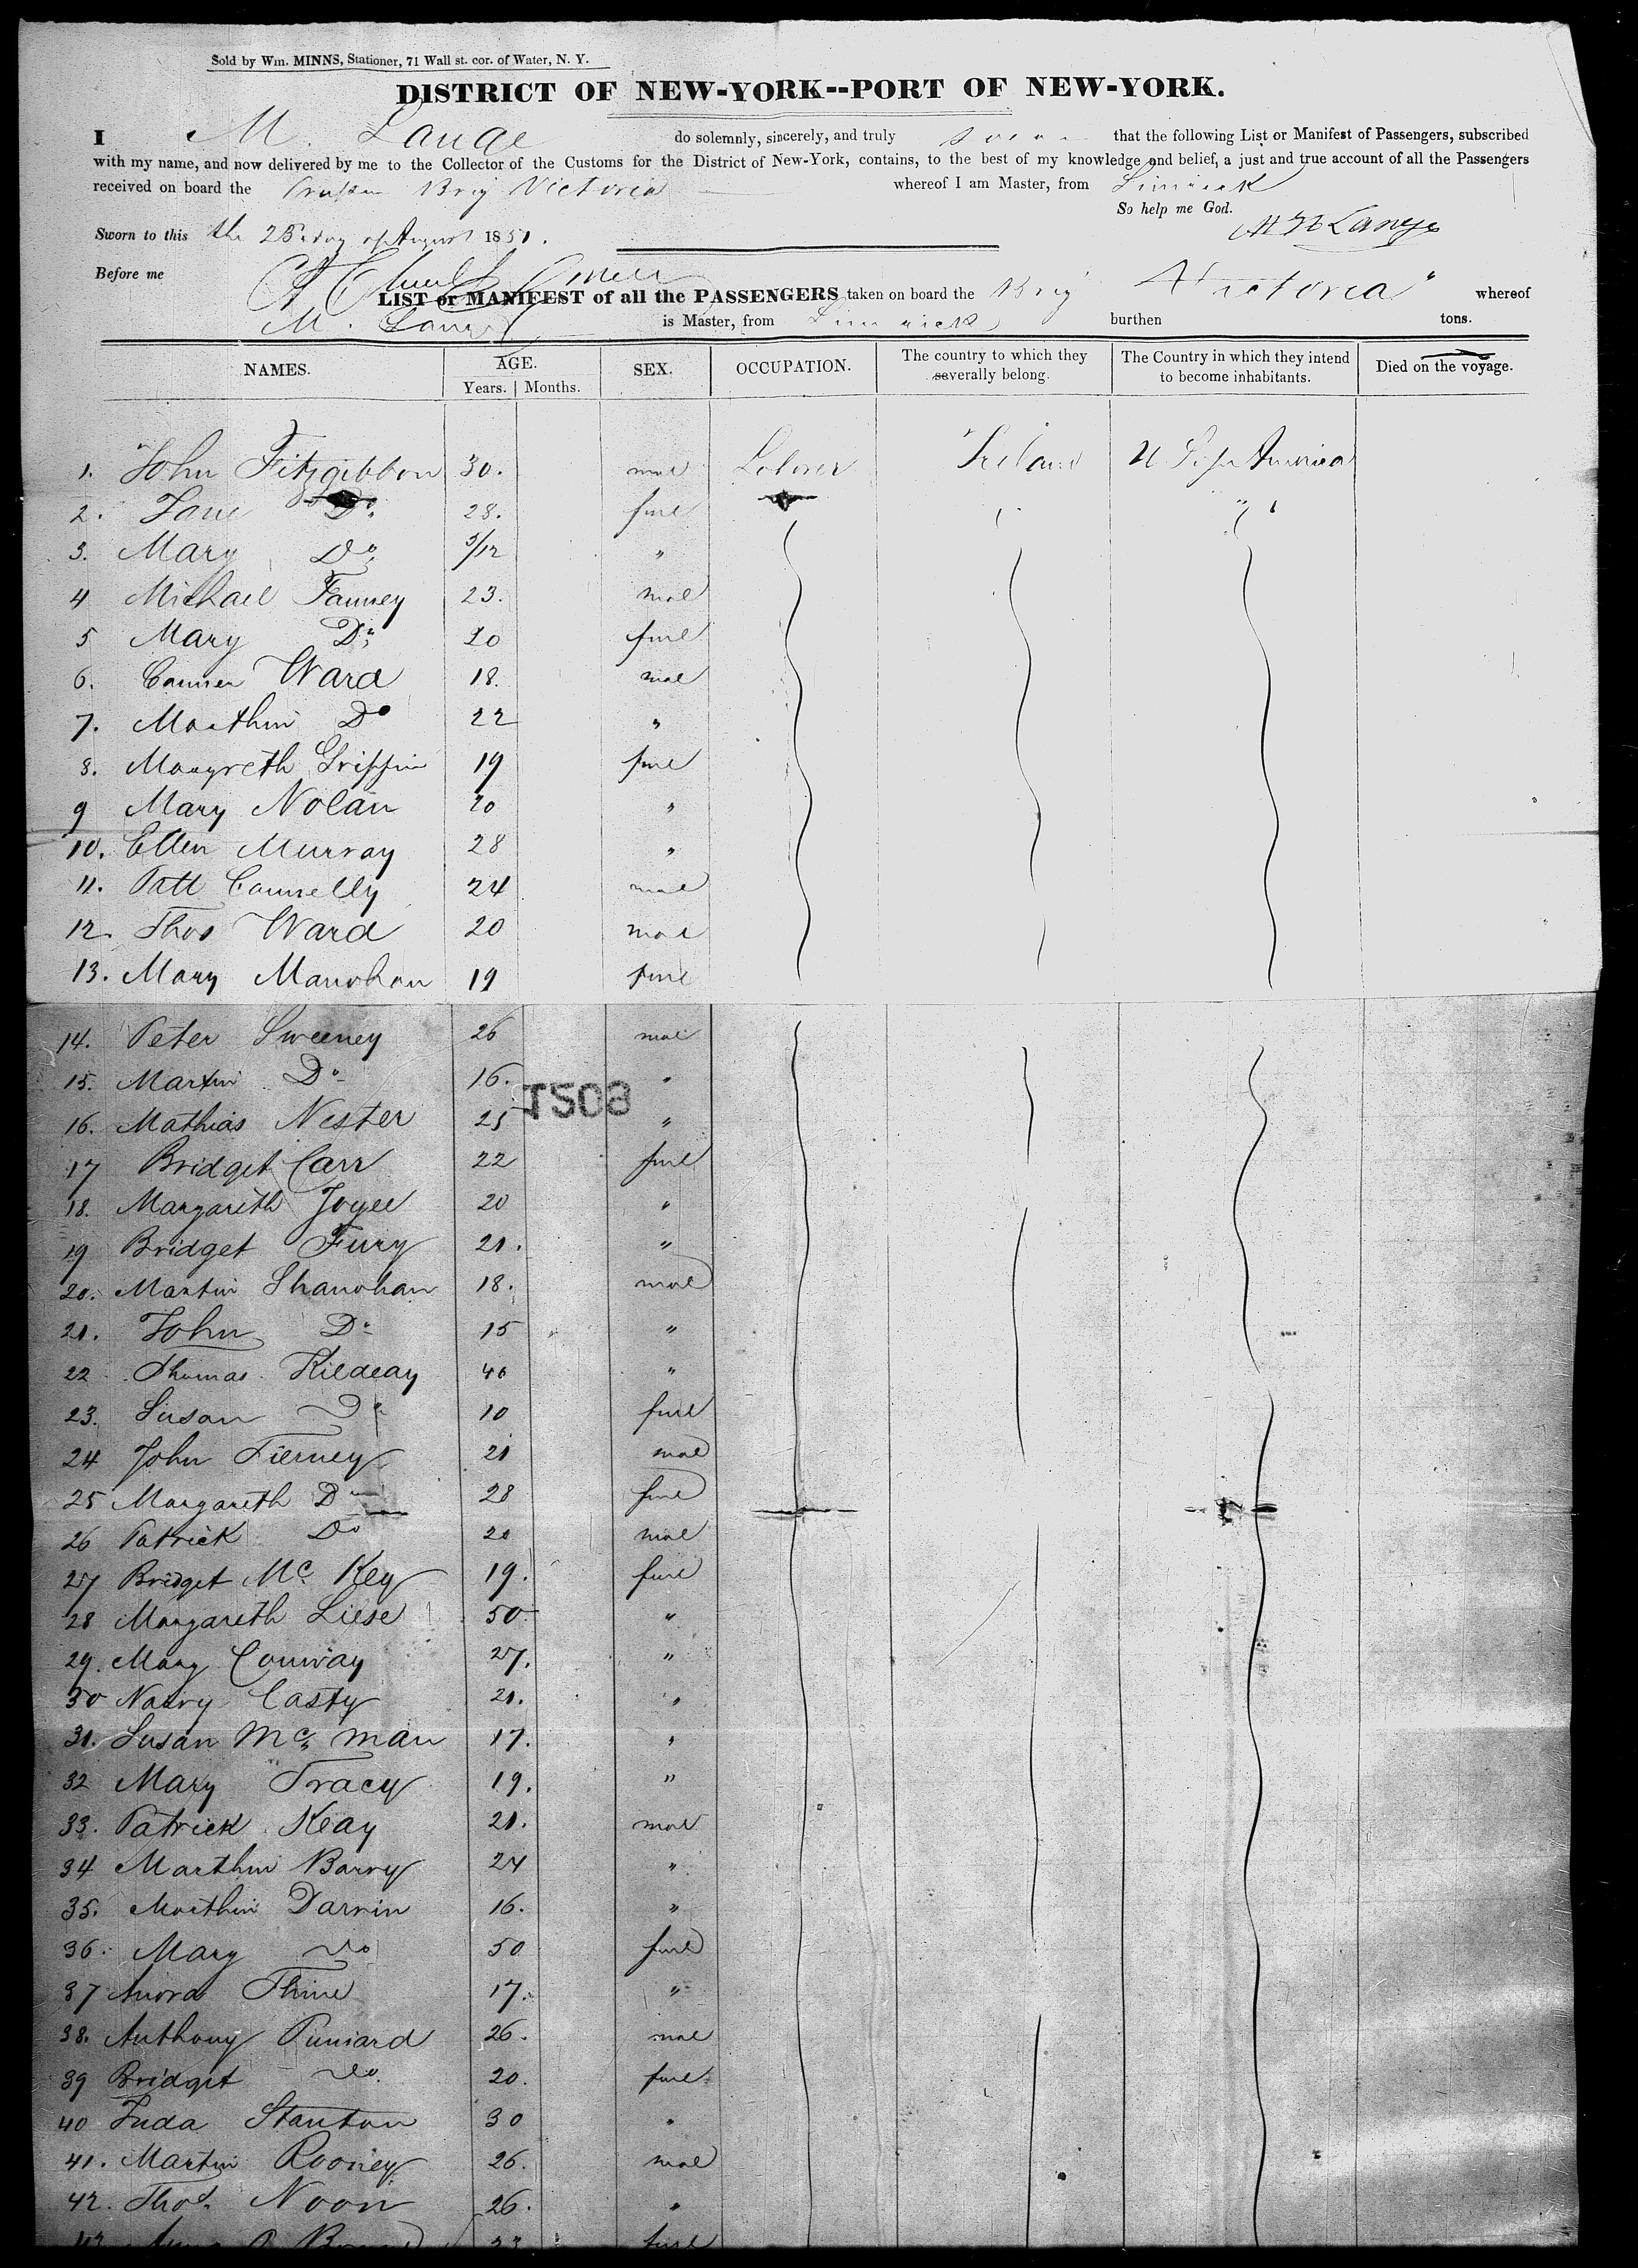 Sold by Wm. MINNS, Stationer, 71 Wall st. cor. of Water, N. Y.
DISTRICT OF NEW-YORK--PORT OF NEW-YORK.
I M. Lange do solemnly, sincerely, and truly that the following List or Manifest of Passengers, subscribed
with my name, and now delivered by me to the Collector of the Customs for the District of New-York, contains, to the best of my knowledge and belief, a just and true account of all the Passengers
received on board the Brig Victoria whereof I am Master, from Limrick
So help me God.
Sworn to this the 25 day of August 1851. Lange
Before me
LIST or MANIFEST of all the PASSENGERS taken on board the Brig Victoria" whereof
M. Lange is Master, from Limrick burthen tons.
NAMES. AGE. Years. Months. SEX. OCCUPATION. The country to which they severally belong. The Country in which they intend to become inhabitants. Died on the voyage.
1. John Fitzgibbon 30. male Laborer Ireland U. S. of America
2. Jane Do 28. fml
3. Mary Do 5/12 "
4 Michael Fanney 23. male
5 Mary Do 20 fml
6. Ward 18. male
7. Marthin Do 22 "
8. Margreth Griffin 19 fml
9 Mary Nolan 20 "
10. Ellen Murray 28 "
11. Patt Connelly 24 male
12. Thos Ward 20 male
13. Mary Manohan 19 fml
14. Peter Sweeney 26 male
15. Martin Do 16. "
16. Mathias Nester 25 "
17 Bridget Carr 22 fml
18. Margareth Joyce 20 "
19 Bridget Fury 21. "
20. Martin Shanohan 18. male
21. John Do 15 "
22 Thomas Kildeay 40 "
23. Susan Do 10 fml
24 John Tierney 21 male
25 Margareth Do 28 fml
26 Patrick Do 20 male
27 Bridget Mc Key 19. fml
28 Margareth Liese 50 "
29. Mary Conway 27. "
30 Casty 21. "
31. Susan Mc man 17. "
32 Mary Tracy 19. "
33. Patrick Keay 21. male
34 Marthin Barry 24 "
35. Marthin Darnin 16. "
36. Mary Do 50 fml
37 Anora Thine 17. "
38. Anthony Puniard 26. male
39 Bridget Do 20. fml
40 Juda Stanton 30 "
41. Martin Rooney 26. male
42. Thos. Noon 26. "